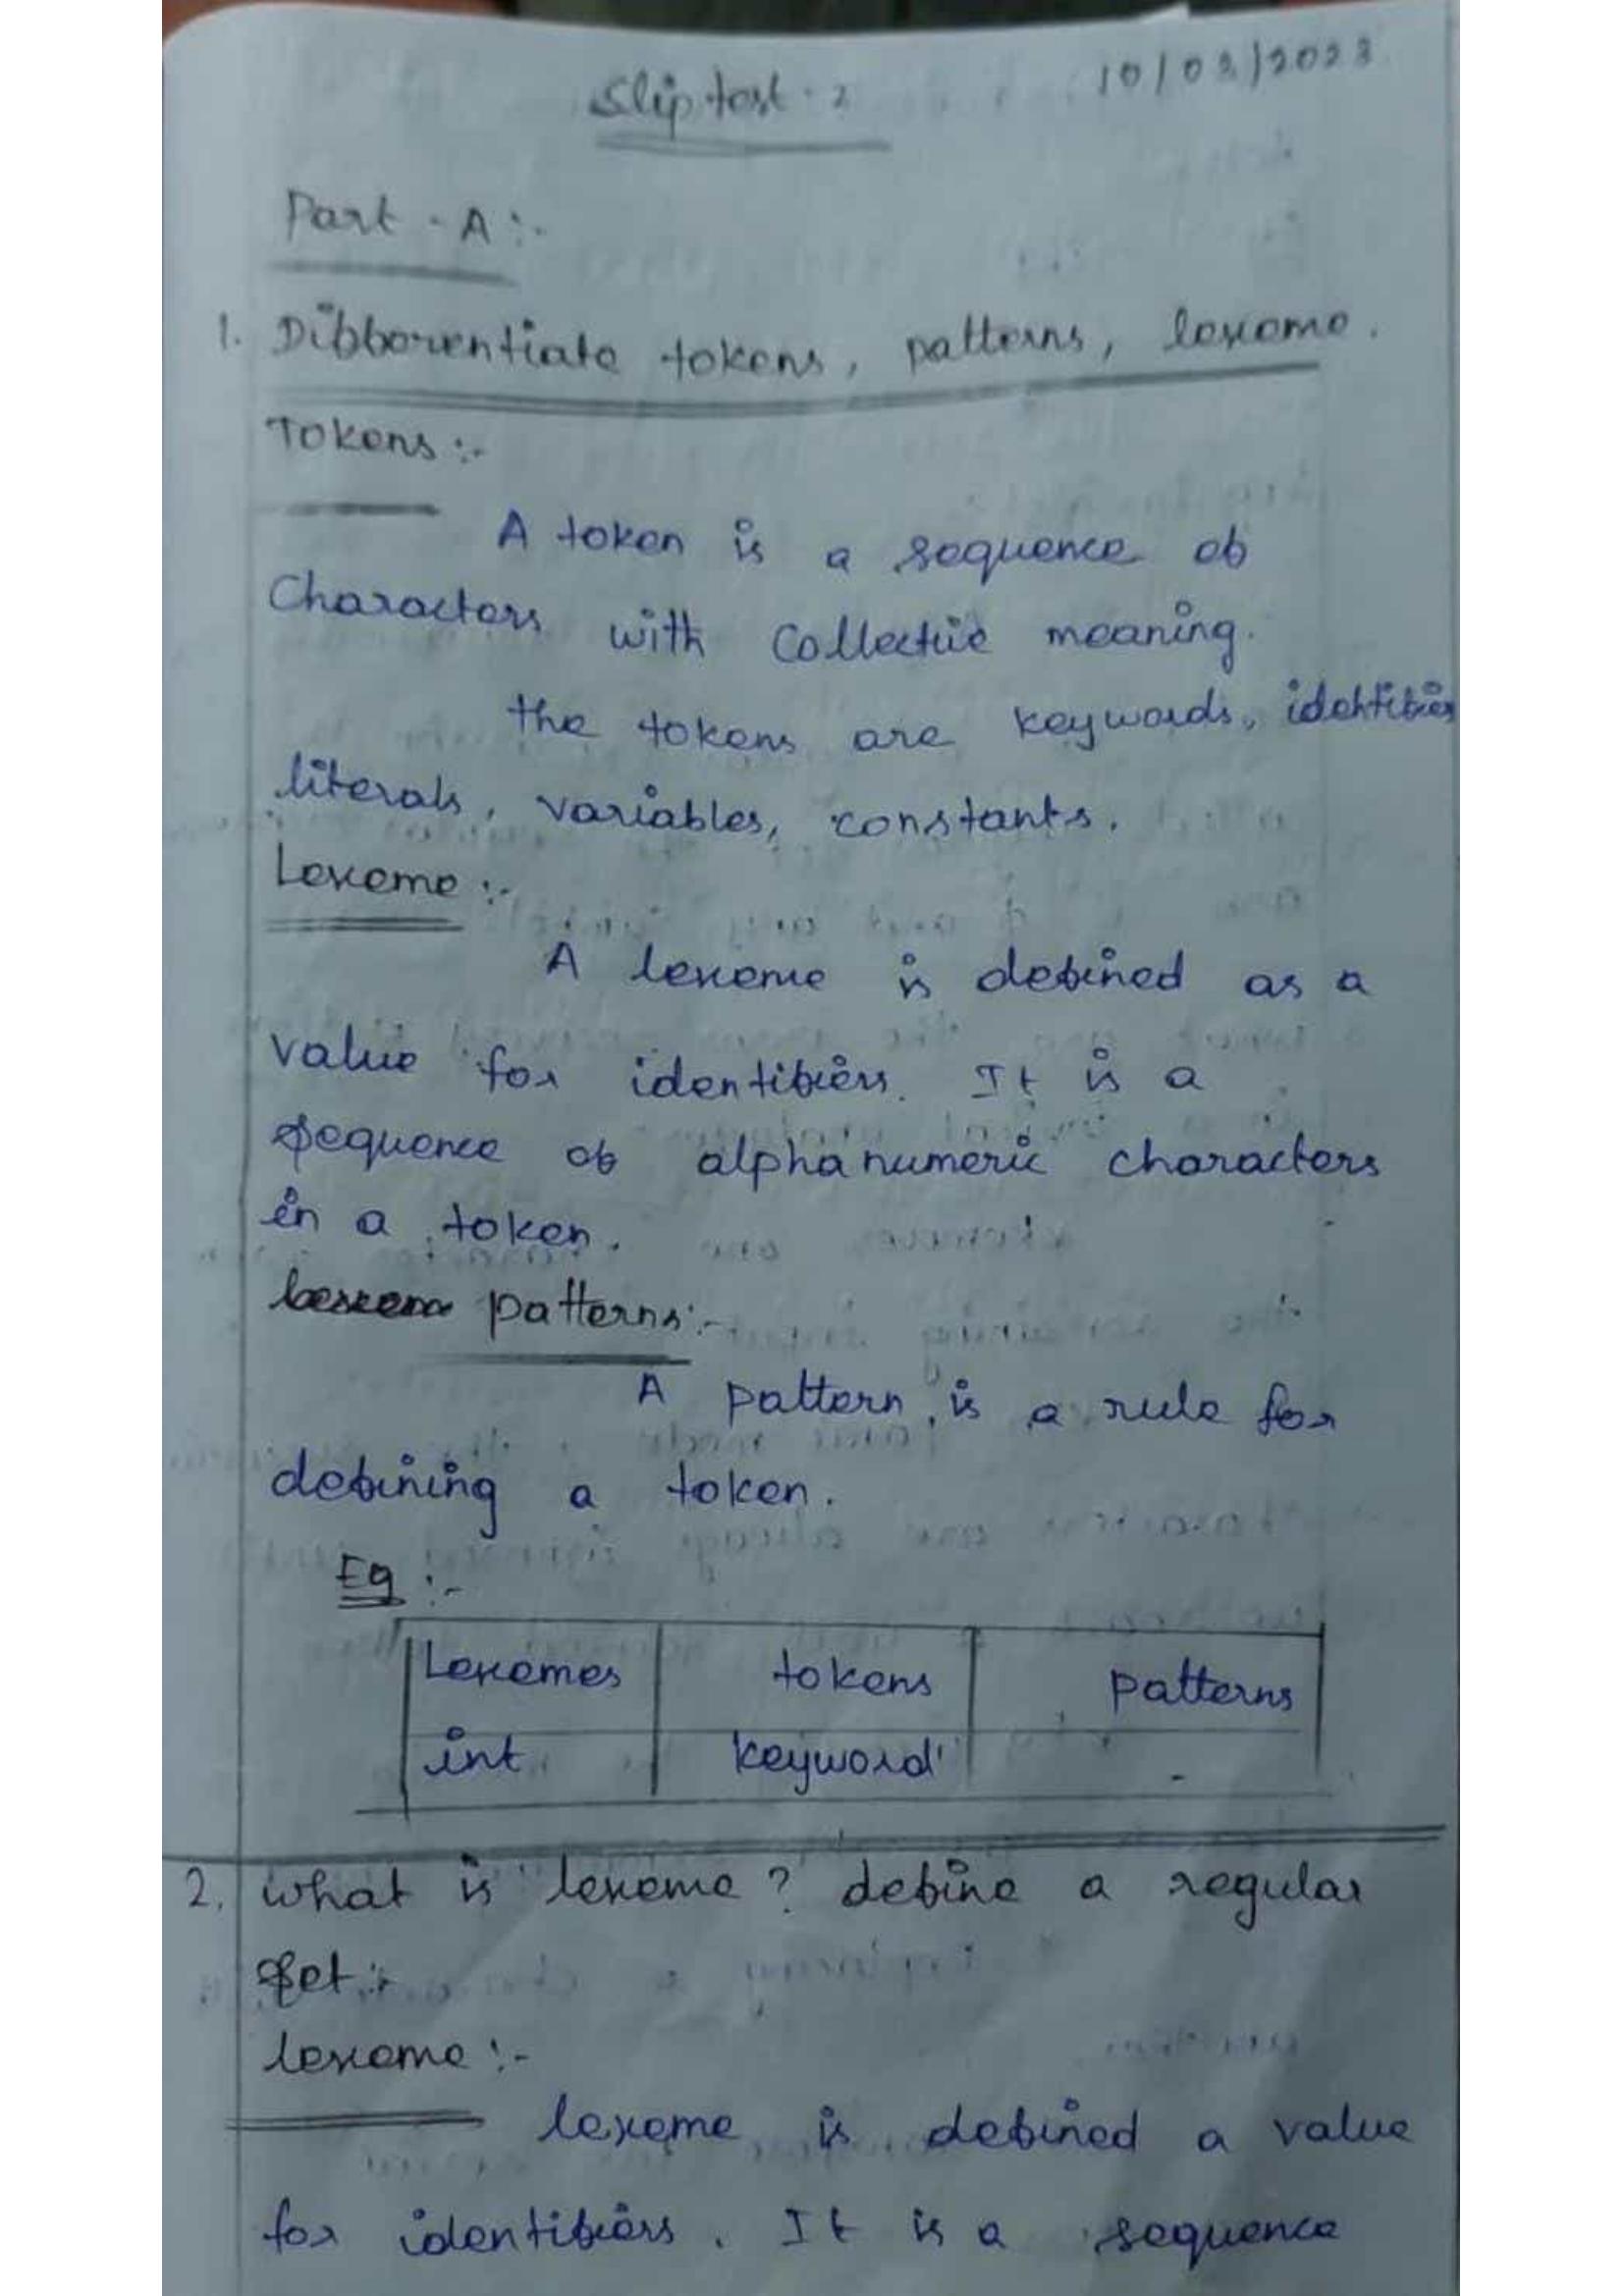 Slip test - 2
10/03/2023
Part - A :-
1. Differentiate tokens, patterns, lexeme.
Tokens :-
A token is a sequence of
Characters with Collective meaning.
the tokens are keywords, identifiers
literals, variables, constants.
Lexeme :-
A lexeme is defined as a
value for identifiers. It is a
sequence of alphanumeric characters
in a token.
patterns :-
A pattern is a rule for
defining a token.
Eg :-
Lexemes tokens patterns
int keyword -
2. what is lexeme? define a regular
set :-
lexeme :-
lexeme is defined a value
for identifiers. It is a sequence